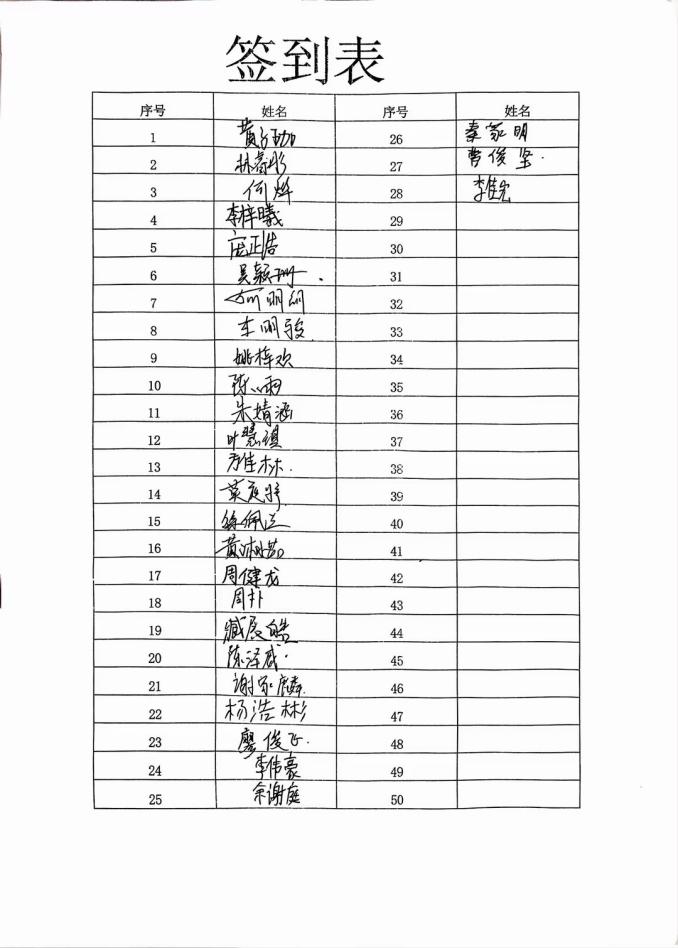 签到表
序号 姓名 序号 姓名
1 26 秦家明
2 林睿彤 27 曹俊坚.
3 何烨 28
4 李梓曦 29
5 庞正浩 30
6 吴颖珊. 31
7 何明纲 32
8 王明骏 33
9 姚梓欢 34
10 陈心雨 35
11 朱婧涵 36
12 叶慧祺 37
13 佳林. 38
14 39
15 徐佩 40
16 黄 41
17 周健龙 42
18 周扑 43
19 臧展皓 44
20 陈泽威. 45
21 谢家麟. 46
22 杨浩彬 47
23 廖俊飞. 48
24 李伟豪 49
25 余谢庭 50